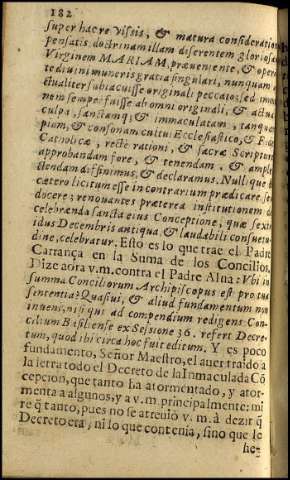 182
super hac re visis, & matura consideratione
pensatis, doctrinam illam diserentem gloriosam
Virginem MARIAM, præveniente, & operante
divini muneris gratia singulari, nunquam
actualiter subiacuisse originali peccato; sed immunem
semper fuisse ab omni originali, & actuali
culpa, sanctamq; & immaculatam, tanquam
pium, & consonam cultui Ecclesiastico, & Fidei
Catholicæ, rectæ rationi, & sacræ Scripturæ
approbandam fore, & tenendam, & ample-
ctendam diffinimus, & declaramus. Nullique
cætero licitum esse in contrarium prædicare, seu
docere; renovantes præterea institutionem de
celebranda sancta eius Conceptione, quæ sexto
idus Decembris antiqua & laudabili consuetu-
dine, celebratur. Esto es lo que trae el Padre
Carrança en la Suma de los Concilios.
Dize aora v.m. contra el Padre Alua: Vbi in
summa Conciliorum Archipiscopus est pro tua
sintentia? Quasiui, & aliud fundamentum non
inueni, nisi qui ad compendium redigens Con-
cilium Basiliense ex Sessione 36. refert Decre-
tum, quod ibi circa hoc fuit editum. Y es poco
fundamento, Señor Maestro, el auer traido a
la letra todo el Decreto de la Inmaculada Cō
cepcion, que tanto ha atormentado, y ator-
menta a algunos, y a v.m. principalmente: mi
re q̃ tanto, pues no se atreuio v. m. à dezir q̃
Decreto era, ni lo que contenia, sino que le
he-